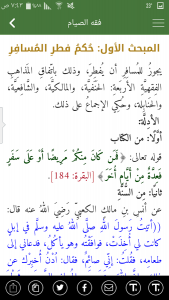 ٧:١٢ م
فقه الصيام
المبحث الأول: حُكمُ فطرِ المُسافِرِ
يجوزُ للمسافِرِ أن يُفطِرَ، وذلك باتِّفاقِ المذاهِبِ
الفِقهيَّةِ الأربَعةِ: الحَنَفيَّة، والمالكيَّة، والشَّافِعيَّة،
والحَنابِلة، وحُكِيَ الإجماعُ على ذلك.
الأدِلَّة:
أوَّلًا: من الكتاب
قوله تعالى: ﴿ فَمَنْ كَانَ مِنْكُمْ مَرِيضًا أَوْ عَلَى سَفَرٍ
فَعِدَّةٌ مِنْ أَيَّامٍ أُخَرَ ﴾ [البقرة: 184].
ثانيًا: مِن السُّنَّةِ
عن أنَسِ بنِ مالكٍ الكعبيِّ رَضِيَ اللهُ عنه قال:
((أتيتُ رسولَ اللهِ صلَّى اللهُ عليه وسلَّم في إبلٍ
كانت لي أُخِذَتْ، فوافَقْتُه وهو يأكُلُ، فدعاني إلى
طعامه، فقلتُ: إنِّي صائِمٌ، فقال: ادْنُ أُخبِرْكَ عن